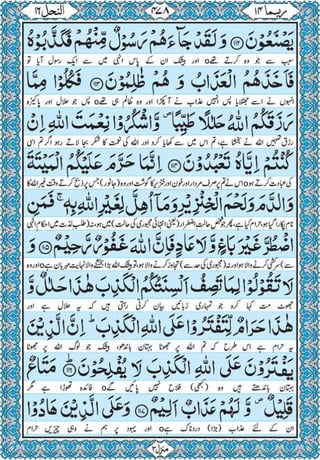 النحل ١٦
٤٧٨
ربما ١٤
يَصْنَعُوْنَ ﴿١١٢﴾ وَ لَقَدْ جَآءَهُمْ رَسُوْلٌ مِّنْهُمْ فَكَذَّبُوْهُ
سبب سے جو وہ کرتے تھے ٥ اور بیشک ان کے پاس انہی میں سے ایک رسول آیا تو
فَاَخَذَهُمُ الْعَذَابُ وَ هُمْ ظٰلِمُوْنَ ﴿١١٣﴾ فَكُلُوْا مِمَّا
انہوں نے اسے جھٹلایا پس انہیں عذاب نے آ پکڑا اور وہ ظالم ہی تھے ٥ پس جو حلال اور پاکیزہ
رَزَقَكُمُ اللّٰهُ حَلٰلًا طَيِّبًا ۪ وَّ اشْكُرُوْا نِعْمَتَ اللّٰهِ اِنْ
رزق تمہیں اللہ نے بخشا ہے، تم اس میں سے کھایا کرو اور اللہ کی نعمت کا شکر بجا لاتے رہو اگر تم اسی
كُنْتُمْ اِيَّاهُ تَعْبُدُوْنَ ﴿١١٤﴾ اِنَّمَا حَرَّمَ عَلَيْكُمُ الْمَيْتَةَ
کی عبادت کرتے ہو ٥ اس نے تم پر صرف مردار اور خون اور خنزیر کا گوشت اور وہ
وَ الدَّمَ وَ لَحْمَ الْخِنْزِيْرِ وَ مَاۤ اُهِلَّ لِغَيْرِ اللّٰهِ بِهٖ ۚ فَمَنِ
نام پکارا گیا ہو حرام کیا ہے، پھر جو شخص حالت اضطرار
اضْطُرَّ غَيْرَ بَاغٍ وَّ لَا عَادٍ فَاِنَّ اللّٰهَ غَفُوْرٌ رَّحِيْمٌ ﴿١١٥﴾ وَ
سرکشی کرنے والا ہو اور نہ تجاوز کرنے والا ہو، تو بیشک اللہ بڑا بخشنے والا نہایت مہربان ہے ٥ اور
لَا تَقُوْلُوْا لِمَا تَصِفُ اَلْسِنَتُكُمُ الْكَذِبَ هٰذَا حَلٰلٌ وَّ
جھوٹ مت کہا کرو جو تمہاری زبانیں بیان کرتی رہتی ہیں کہ یہ حلال ہے اور
هٰذَا حَرَامٌ لِّتَفْتَرُوْا عَلَى اللّٰهِ الْكَذِبَ ؕ اِنَّ الَّذِيْنَ
یہ حرام ہے اس طرح کہ تم اللہ پر جھوٹا بہتان باندھو، بیشک جو لوگ اللہ پر جھوٹا
يَفْتَرُوْنَ عَلَى اللّٰهِ الْكَذِبَ لَا يُفْلِحُوْنَ ﴿١١٦﴾ مَتَاعٌ
بہتان باندھتے ہیں وہ (کبھی) فلاح نہیں پائیں گے ٥ فائدہ تھوڑا ہے مگر
قَلِيْلٌ ۪ وَّ لَهُمْ عَذَابٌ اَلِيْمٌ ﴿١١٧﴾ وَ عَلَى الَّذِيْنَ هَادُوْا
ان کے لئے عذاب (بڑا) دردناک ہے ٥ اور یہود پر ہم نے وہی چیزیں حرام
منزل ٣